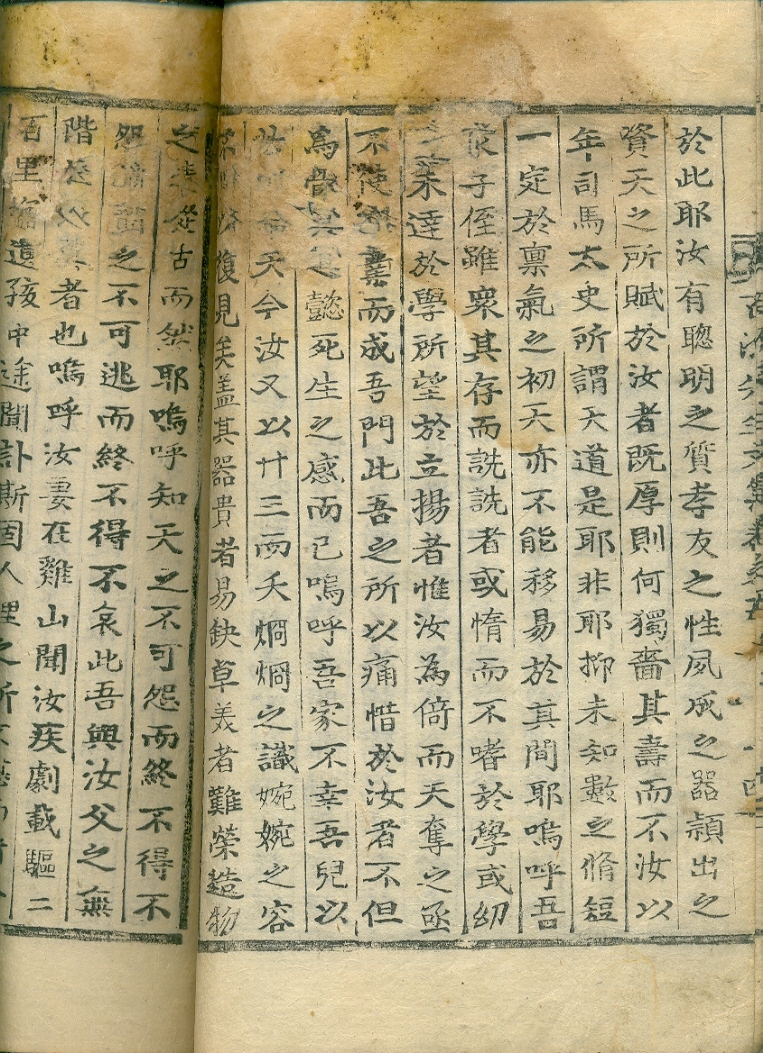 於此耶汝有聰明之質孝友之性夙成之器頴出之
資天之所賦於汝者旣厚則何獨嗇其壽而不汝以
年司馬太史所謂天道是耶非耶抑未知數之脩短
一定於禀氣之初天亦不能移易於其間耶嗚呼吾
子侄雖衆其存而詵詵者或惰而不嗜於學或幼
未達於學所望於立揚者惟汝為倚而天奪之亟
不使而成吾門此吾之所以痛惜於汝者不但
為懿死生之感而已嗚呼吾家不幸吾兒以
天今汝又以廿三而夭烱烱之識婉婉之容
復見矣盖其器貴者易缺草美者難榮造物
之 古而然耶嗚呼知天之不可怨而終不得不
怨 之不可逃而終不得不哀此吾與汝父之無
階 以 者也嗚呼汝妻在雞山聞汝疾劇載驅二
百里 遺孩中途聞訃斯固人理之所